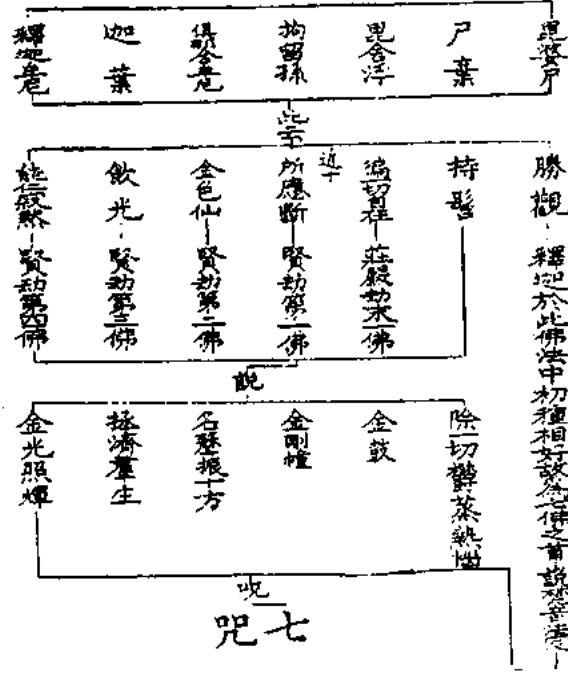 毘婆尸
尸棄
毘舍浮
拘留孫
俱那含牟尼
迦葉
釋迦牟尼
此云
勝觀
釋迦於此佛法中初種相好故為七佛之首說
持髻
遍一切自在
莊嚴劫末一佛
近寸
所應斷
賢劫第一佛
金色仙
賢劫第二佛
飲光
賢劫第三佛
能仁寂默
賢劫第四佛
說
除一切欝蒸熱惱
金鼓
金剛幢
名聲振十方
拯濟羣生
金光照煇
呪
七咒